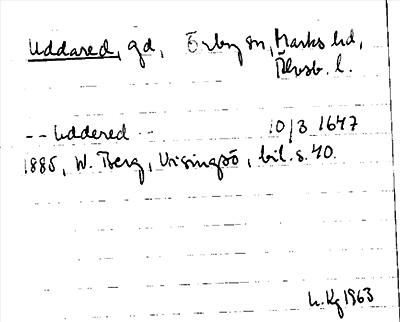 Uddared, gd, Örby sn, Marks hd,
Älvsb. l.
-- Uddered -- 10/3 1647
1885, W. Berg, Visingsö, bil. s. 40.
L. Kg 1963